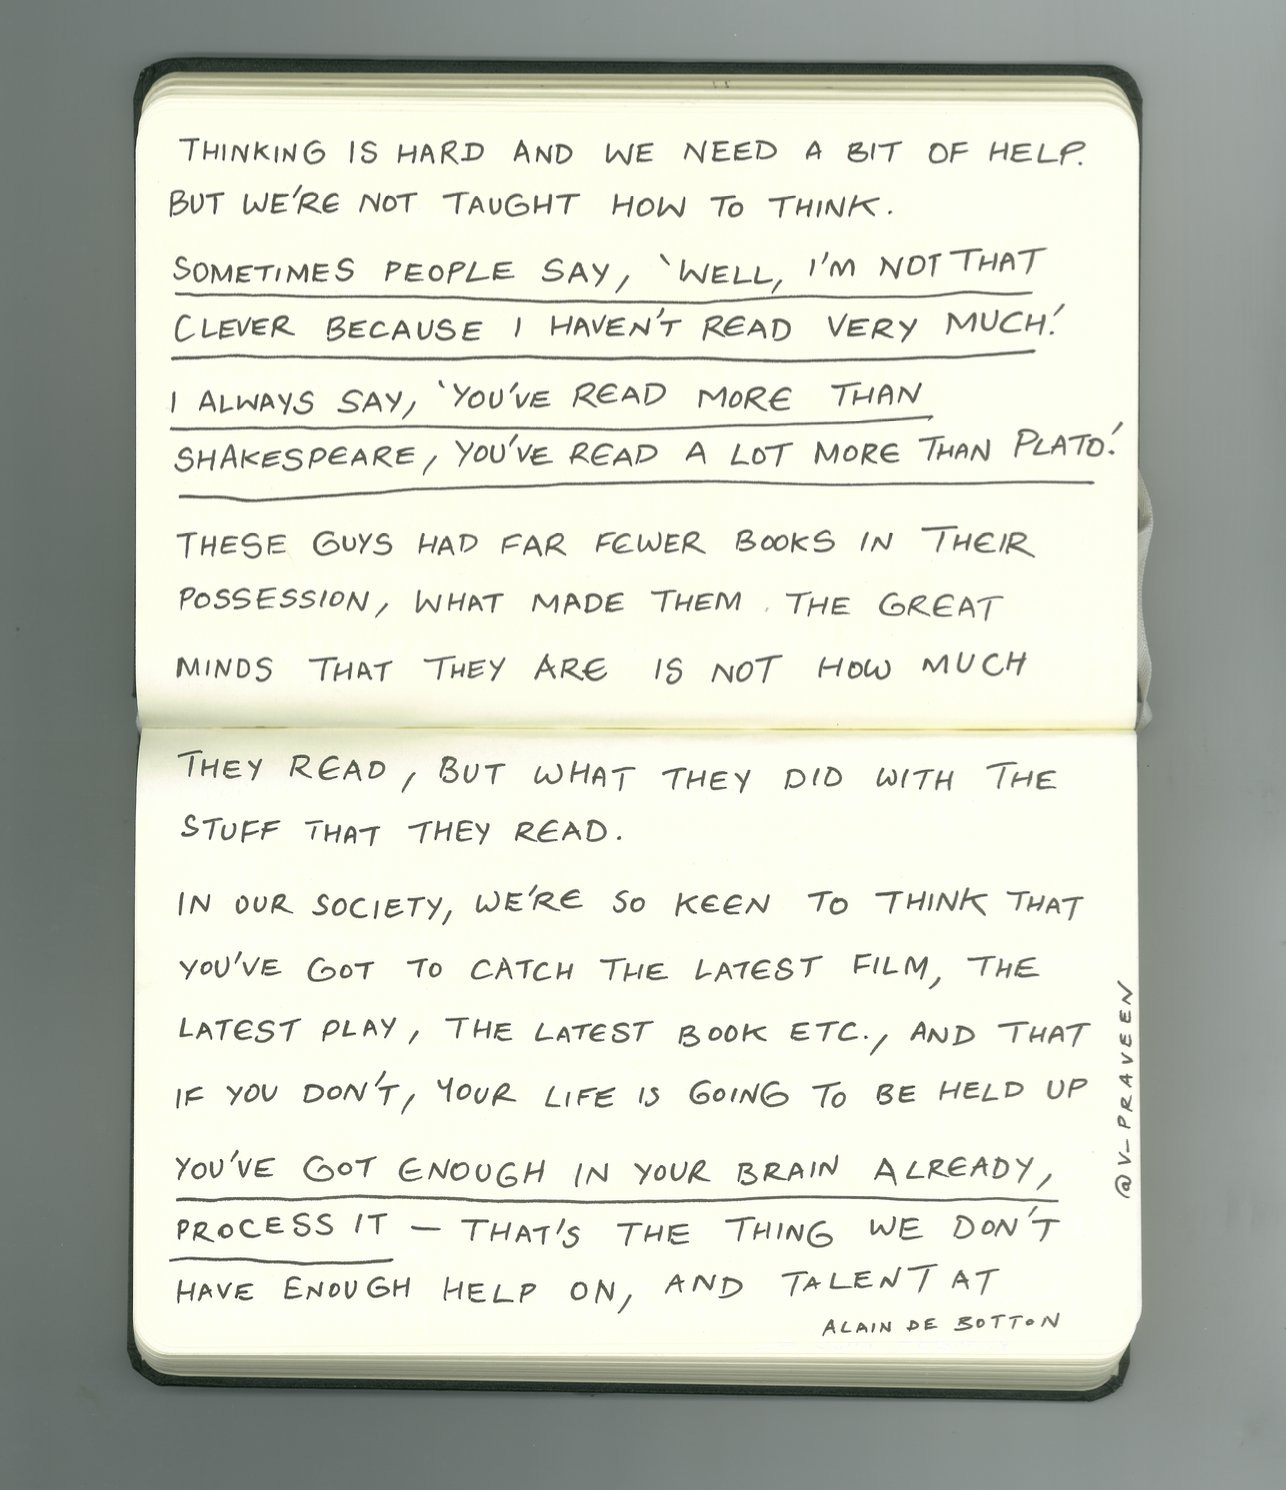 THINKING IS HARD AND WE NEED A BIT OF HELP.
BUT WE'RE NOT TAUGHT HOW TO THINK.
SOMETIMES PEOPLE SAY, 'WELL, I'M NOT THAT
CLEVER BECAUSE I HAVEN'T READ VERY MUCH.'
I ALWAYS SAY, 'YOU'VE READ MORE THAN
SHAKESPEARE, YOU'VE READ A LOT MORE THAN PLATO.'
THESE GUYS HAD FAR FEWER BOOKS IN THEIR
POSSESSION, WHAT MADE THEM THE GREAT
MINDS THAT THEY ARE IS NOT HOW MUCH
THEY READ, BUT WHAT THEY DID WITH THE
STUFF THAT THEY READ.
IN OUR SOCIETY, WE'RE SO KEEN TO THINK THAT
YOU'VE GOT TO CATCH THE LATEST FILM, THE
LATEST PLAY, THE LATEST BOOK ETC., AND THAT
IF YOU DON'T, YOUR LIFE IS GOING TO BE HELD UP
YOU'VE GOT ENOUGH IN YOUR BRAIN ALREADY,
PROCESS IT — THAT'S THE THING WE DON'T
HAVE ENOUGH HELP ON, AND TALENT AT
ALAIN DE BOTTON
@V_PRAVEEN